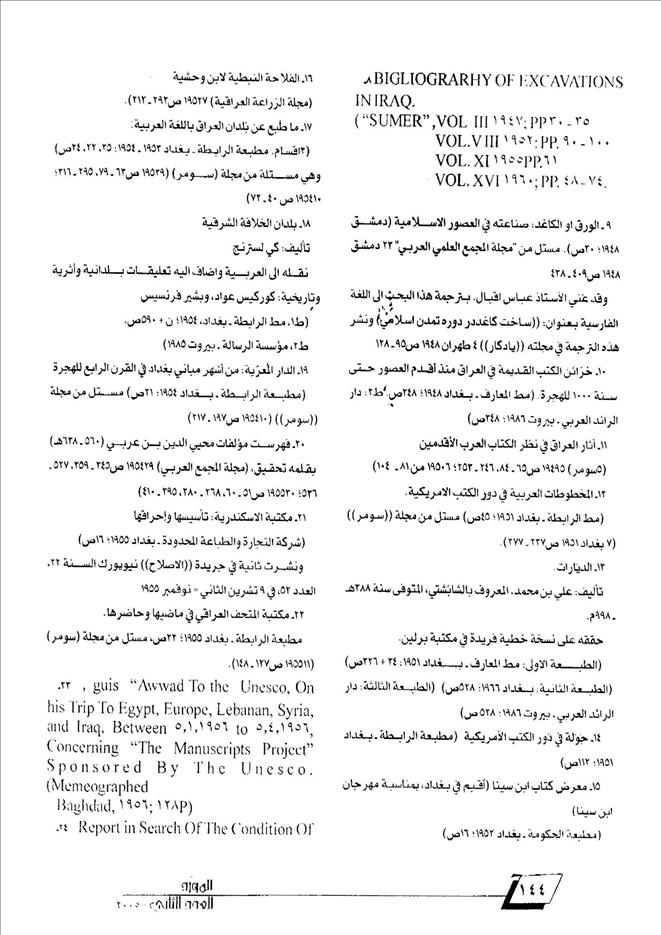 ٨. BIGLIOGRARHY OF EXCAVATIONS
IN IRAQ.
("SUMER", VOL III ١٩٤٧; PP٣٠ - ٣٥
VOL. VIII ١٩٥٢; PP. ٩٠ - ١٠٠
VOL. XI ١٩٥٥PP.٦١
VOL. XVI ١٩٦٠; PP. ٤٨-٧٤.
٩. الورق او الكاغد: صناعته في العصور الاسلامية (دمشق
١٩٤٨؛ ٣٠ص). مستل من "مجلة المجمع العلمي العربي" ٢٣ دمشق
١٩٤٨ ص٤٠٩ـ ٤٣٨
وقد عُني الأستاذ عباس اقبال. بترجمة هذا البحث الى اللغة
الفارسية بعنوان: ((ساخت كاغددر دوره تمدن اسلامي)) ونشر
هذه الترجمة في مجلته ((يادكار)) ٤ طهران ١٩٤٨ ص٩٥ـ ١٢٨
١٠. خزائن الكتب القديمة في العراق منذ أقدم العصور حتى
سنة ١٠٠٠ للهجرة. (مط المعارف ـ بغداد ١٩٤٨؛ ٣٤٨ص. ط٢: دار
الرائد العربي ـ بيروت ١٩٨٦؛ ٣٤٨ص)
١١. آثار العراق في نظر الكتاب العرب الأقدمين
(٥سومر) ١٩٤٩٥ ص٦٥ـ ٨٤، ٢٤٦ـ ٢٥٣؛ ١٩٥٠٦ من٨١ـ ١٠٤)
١٢. المخطوطات العربية في دور الكتب الامريكية.
(مط الرابطة ـ بغداد ١٩٥١؛ ٤٥ص) مستل من مجلة ((سومر))
(٧ بغداد ١٩٥١ ص٢٣٧ـ ٢٧٧).
١٣. الديارات.
تأليف: علي بن محمد، المعروف بالشابشتي، المتوفى سنة ٣٨٨هـ
ـ ٩٩٨م.
حققه على نسخة خطية فريدة في مكتبة برلين.
(الطبـعـة الاولى: مط المعارف ـ بـغـداد ١٩٥١؛ ٣٤ + ٣٢٦ص)
(الطبعة الثانية: بـغداد ١٩٦٦؛ ٥٢٨ص) (الطبعة الثالثة: دار
الرائد العربي ـ بيروت ١٩٨٦؛ ٥٢٨ ص)
١٤. جولة في دور الكتب الأمريكية (مطبعة الرابطة ـ بغداد
١٩٥١؛ ١١٢ص)
١٥. معرض كتاب ابن سينا (أقيم في بغداد، بمناسبة مهرجان
ابن سينا)
(مطبعة الحكومة ـ بغداد ١٩٥٢؛ ١٦ص)
١٦. الفلاحة النبطية لابن وحشية
(مجلة الزراعة العراقية) ١٩٥٢٧ ص٢٩٢ـ ٢١٢).
١٧. ما طبع عن بلدان العراق باللغة العربية:
(٣اقسام. مطبعة الرابطة ـ بغداد ١٩٥٣ ـ ١٩٥٤؛ ٢٥، ٢٢، ٢٤ص)
وهي مستلة من مجلة (سومر) (١٩٥٣٩ ص٦٣ـ ٧٩، ٢٩٥ـ ٣١٦؛
١٩٥٤١٠ ص٤٠ـ ٧٢)
١٨. بلدان الخلافة الشرقية
تأليف: كي لسترنج
نقله الى العربية واضاف اليه تعليقات بلدانية وأثرية
وتاريخية: كوركيس عواد، وبشير فرنسيس
(ط١، مط الرابطة ـ بغداد، ١٩٥٤؛ ن + ٥٩٠ص.
ط٢، مؤسسة الرسالة ـ بيروت ١٩٨٥)
١٩. الدار المعزية: من أشهر مباني بغداد في القرن الرابع للهجرة
(مطبـعة الرابطة ـ بـغداد ١٩٥٤؛ ٢١ص) مستل من مجلة
((سومر)) (١٩٥٤١٠ ص١٩٧ـ ٢١٧)
٢٠. فهرست مؤلفات محيي الدين بن عربي (٥٦٠ـ ٦٣٨هـ)
بقلمه تحقيق، (مجلة المجمع العربي) ١٩٥٤٢٩ ص٣٤٥ـ ٣٥٩، ٥٢٧ـ
٥٣٦؛ ١٩٥٥٣٠ ص٥١ـ ٦٠، ٢٦٨ـ ٢٨٠، ٣٩٥ـ ٤١٠)
٢١. مكتبة الاسكندرية: تأسيسها وإحراقها
(شركة التجارة والطباعة المحدودة ـ بغداد ١٩٥٥؛ ١٦ص)
ونشرت ثانية في جريدة ((الاصلاح)) نيويورك السنة ٢٢،
العدد ٥٢، في ٩ تشرين الثاني = نوفمبر ١٩٥٥
٢٢. مكتبة المتحف العراقي في ماضيها وحاضرها.
مطبعة الرابطة ـ بغداد ١٩٥٥؛ ٢٢ص، مستل من مجلة (سومر)
(١٩٥٥١١ ص١٢٧ـ ١٤٨).
٢٣. , guis "Awwad To the Unesco, On
his Trip To Egypt, Europe, Lebanan, Syria,
and Iraq, Between ٥,١,١٩٥٦ to ٥,٤,١٩٥٦,
Concerning "The Manuscripts Project"
Sponsored By The Unesco.
(Memeographed
Baghdad, ١٩٥٦; ١٢٨P)
٢٤. Report in Search Of The Condition Of
١٤٤
المورد
العدد الثاني - ٢٠٠٥